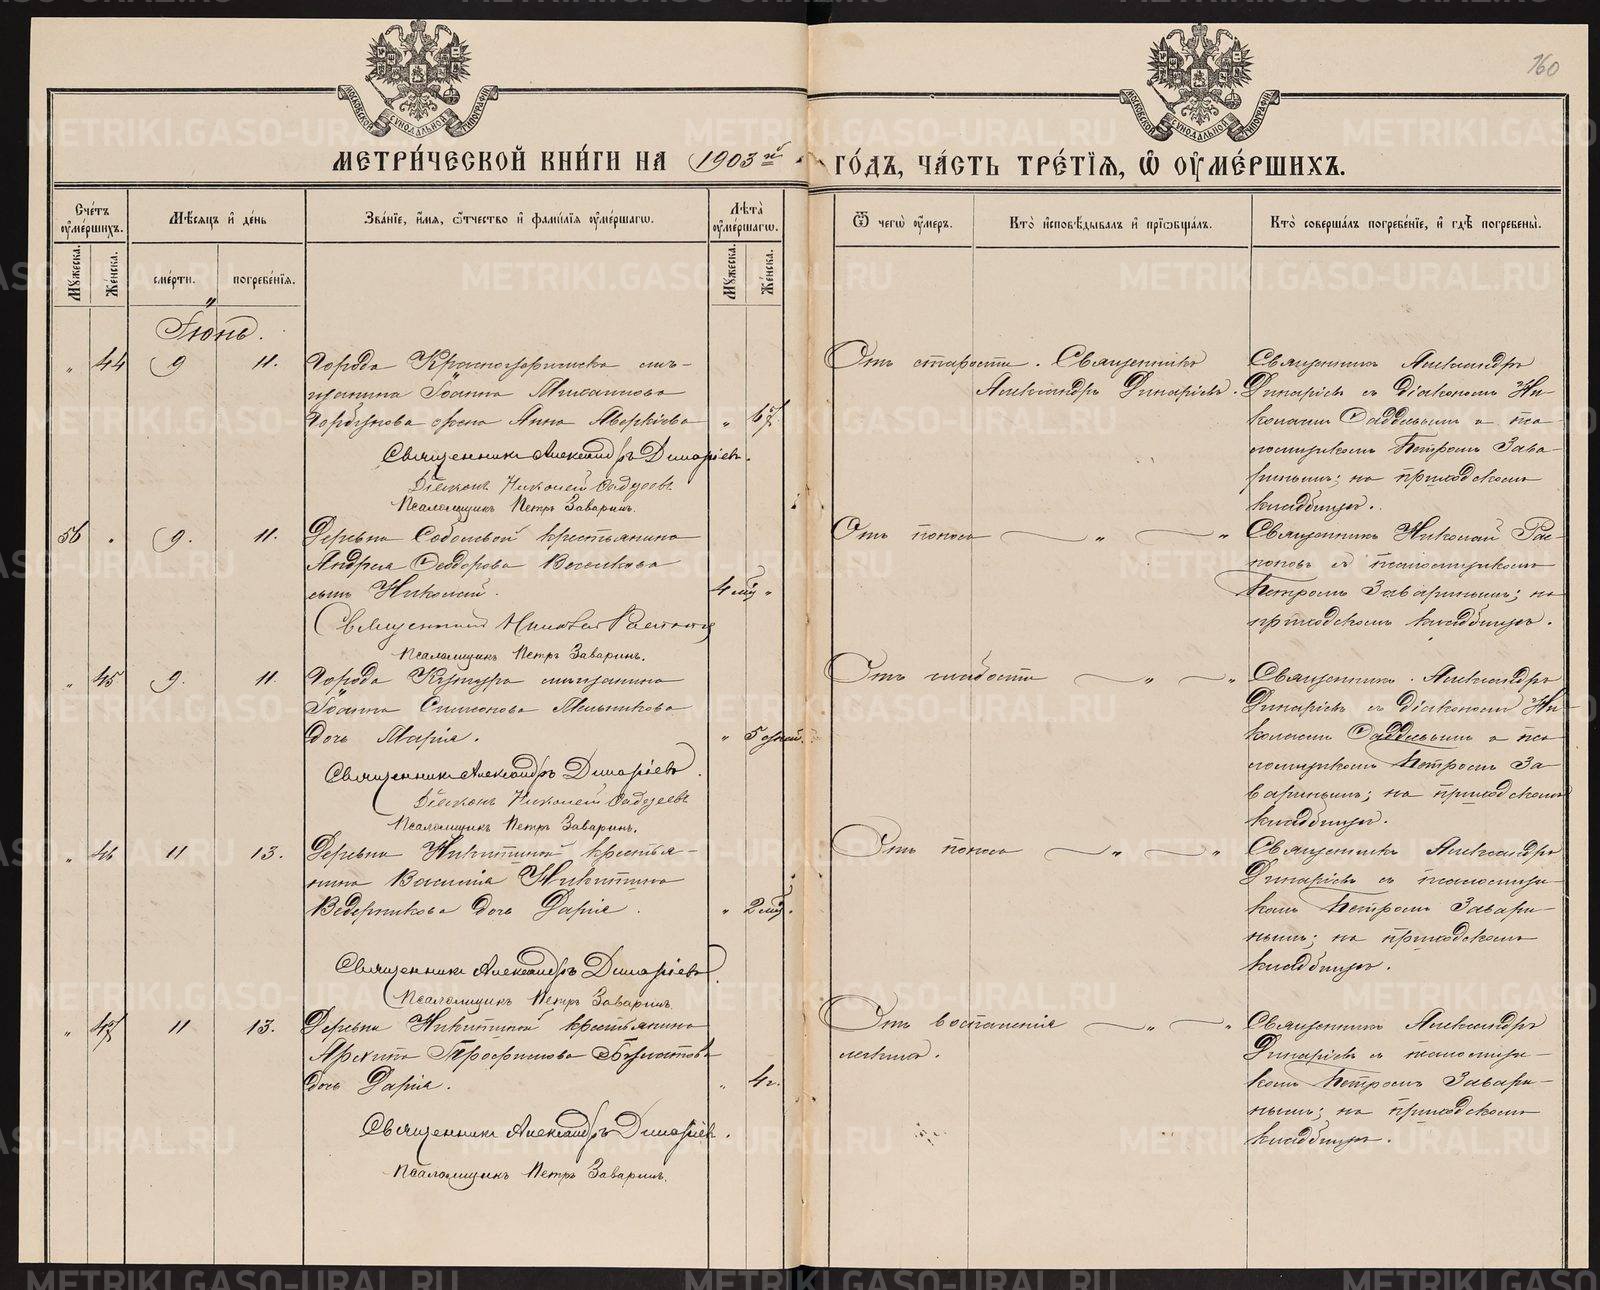 160
МОСКОВСКОЙ СУНОДАЛЬНОЙ ТИПОГРАФІИ
МОСКОВСКОЙ СУНОДАЛЬНОЙ ТИПОГРАФІИ
МЕТРИ́ЧЕСКОЙ КНИ́ГИ НА 1903й ГО́ДЪ, ЧА́СТЬ ТРЕ́ТІѦ, Ѡ҆ ОУ҆МЕ́РШИХЪ.
Сче́тъ оу҆ме́ршихъ.
Мѣ́сяцъ и҆ де́нь
Зва́нїе, и҆́мя, ѻ҆́тчество и҆ фами́лїя оу҆ме́ршагѡ.
Лѣ́та оу҆ме́ршагѡ.
Ѿ чегѡ̀ оу҆́меръ.
Кто̀ и҆сповѣ́дывалъ и҆ прїѡбща́лъ.
Кто̀ соверша́лъ погребе́нїе, и҆ гдѣ̀ погребены̀.
Мꙋ́жеска.
Же́нска.
сме́рти.
погребе́нїя.
Мꙋ́жеска.
Же́нска.
Іюнь.
" 44 9 11. Города Красноуфимска мѣ-
щанина Іоанна
Горбунова жена Анна Аверкіева " 67.
Священникъ Александръ Динаріевъ.
Діаконъ Николай
Псаломщикъ Петръ Заваринъ.
Отъ старости. Священникъ
Александръ Динаріевъ.
Священникъ Александръ
Динаріевъ съ діакономъ Ни-
колаемъ и пса-
ломщикомъ Петромъ Зава-
ринымъ; на приходскомъ
кладбищѣ.
56 . 9. 11. Деревни Соболевой крестьянина
Андрея Ѳеодорова
сынъ Николай. 4 мѣс "
Священникъ Николай
Псаломщикъ Петръ Заваринъ.
Отъ поноса " "
Священникъ Николай Рас-
поповъ съ псаломщикомъ
Петромъ Заваринымъ; на
приходскомъ кладбищѣ.
" 45 9. 11 Города Кунгура мѣщанина
Іоанна Симонова Мельникова
дочь Марія. " 5 дней.
Священникъ Александръ Динаріевъ.
Діаконъ Николай
Псаломщикъ Петръ Заваринъ.
Отъ слабости " "
Священникъ Александръ
Динаріевъ съ діакономъ Ни-
колаемъ и пса-
ломщикомъ Петромъ За-
варинымъ; на приходскомъ
кладбищѣ.
" 46 11 13. Деревни Никитиной крестья-
нина Василія Никитина
Ведерникова дочь Дарія. " 2 мѣс.
Священникъ Александръ Динаріевъ
Псаломщикъ Петръ Заваринъ
Отъ поноса " "
Священникъ Александръ
Динаріевъ съ псаломщи-
комъ Петромъ Завари-
нымъ; на приходскомъ
кладбищѣ.
" 47 11 13. Деревни Никитиной крестьянина
Трофимова
дочь Дарія. " 4 г.
Священникъ Александръ Динаріевъ.
Псаломщикъ Петръ Заваринъ.
Отъ воспаленія " "
легкихъ.
Священникъ Александръ
Динаріевъ съ псаломщи-
комъ Петромъ Завари-
нымъ; на приходскомъ
кладбищѣ.
METRIKI.GASO-URAL.RU